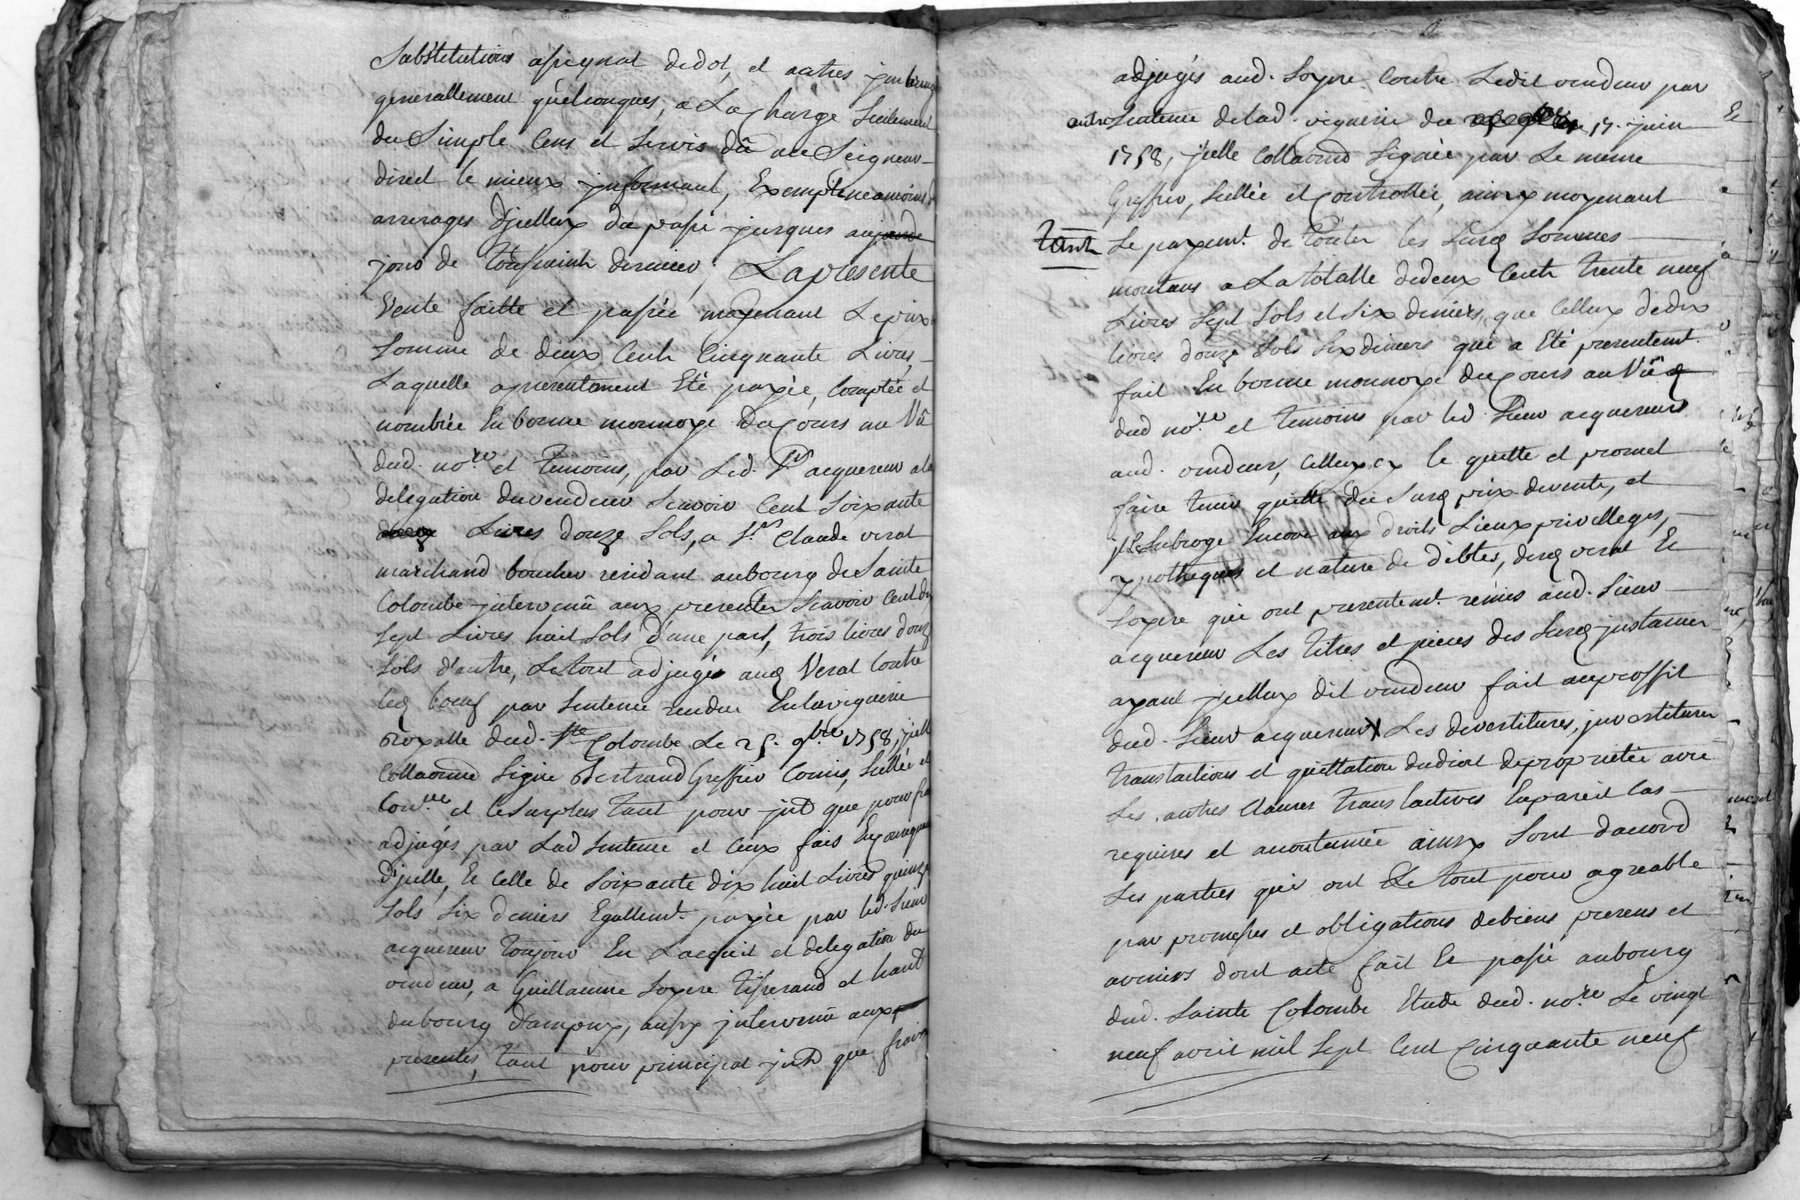 Substitutions assignat dedot, et autres
generallement quelconques, a La charge Seulement
du Simple Cens et Servis dû au Seigneur
direct le mieux jnformant, Exempt neamoins
arrerages d'jcelluy du passé jusques au
jour de Toussaint dernier, La presente
Vente faitte et passée moyenant Le prix
Somme de deux Cents Cinquante Livres,
Laquelle a presentement Eté payée, Comptée et
nombrée En bonne monnoye du Cours au Vû
dud. no.re et temoins, par Led. Sr acquereur a la
delegation du vendeur Scavoir Cent Soixante
Livres douze Sols, a Sr. Claude verat
marchand boucher residant au bourg de Sainte
Colombe jntervenû aux presentes Scavoir Cent dix
Sept Livres huit Sols d'une part, trois livres douze
Sols d'autre, Le tout adjugé aud Verat Contre
led bœuf par Sentence rendue En la viguerie
Royalle dud. Ste. Colombe Le 25. 9bre 1758, jcelle
Collationné Signé Bertrand Greffier Comis, Scellée et
Con.ée et le Surplus tant pour jnt que pour frais
adjugés par Lad Sentence et Ceux fais En consequence
D'jcelle, Et Celle de Soixante dix huit Livres quinze
Sols Six deniers Egallem.t payée par led. Sieur
acquereur toujour En L'acquit et delegation du
vendeur, a Guillaume Soyere Tisserand et habt
du bourg d'ampuy, aussy jntervenû aux
presentes, tant pour principal jnt que frais
adjugés aud. Soyere Contre Ledit vendeur par
autre Sentence de lad. viguerie du 17. juin
1758, jcelle Collationné Signée par Le meme
Greffier, Scellée et Controllée, ainsy moyenant
Le payem.t de Toutes les Susd Sommes
montans a La totalle de deux Cents trente neuf
Livres Sept Sols et Six deniers, que Celluy de dix
livres douze Sols Six deniers qui a Eté presentem.t
fait En bonne monnoye du Cours au Vû
dud no.re et temoins par led. Sieur acquereur
aud. vendeur, Celluy cy le quitte et promet
faire tenir quitte du Susd prix de vente, et
Subroge Encore aux droits Lieux privilleges,
ypotheques et nature de débtes, desd verat Et
Soyere qui ont presentem.t remis aud. Sieur
acquereur Les titres et pieces des Susd justances
ayant jcelluy dit vendeur fait au proffit
dud. Sieur acquereur Les devestitures, jnvestitures
translactions et quittation du droit de proprietée avec
Les autres Clauses translactives En pareil Cas
requises et acoutumée ainsy Sont d'accord
Les parties qui ont Le tout pour agreable
par promesses et obligations de biens presens et
avenirs dont acte fait Et passé au bourg
dud. Sainte Colombe Etude dud. no.re Le vingt
neuf avril mil Sept Cent Cinquante neuf